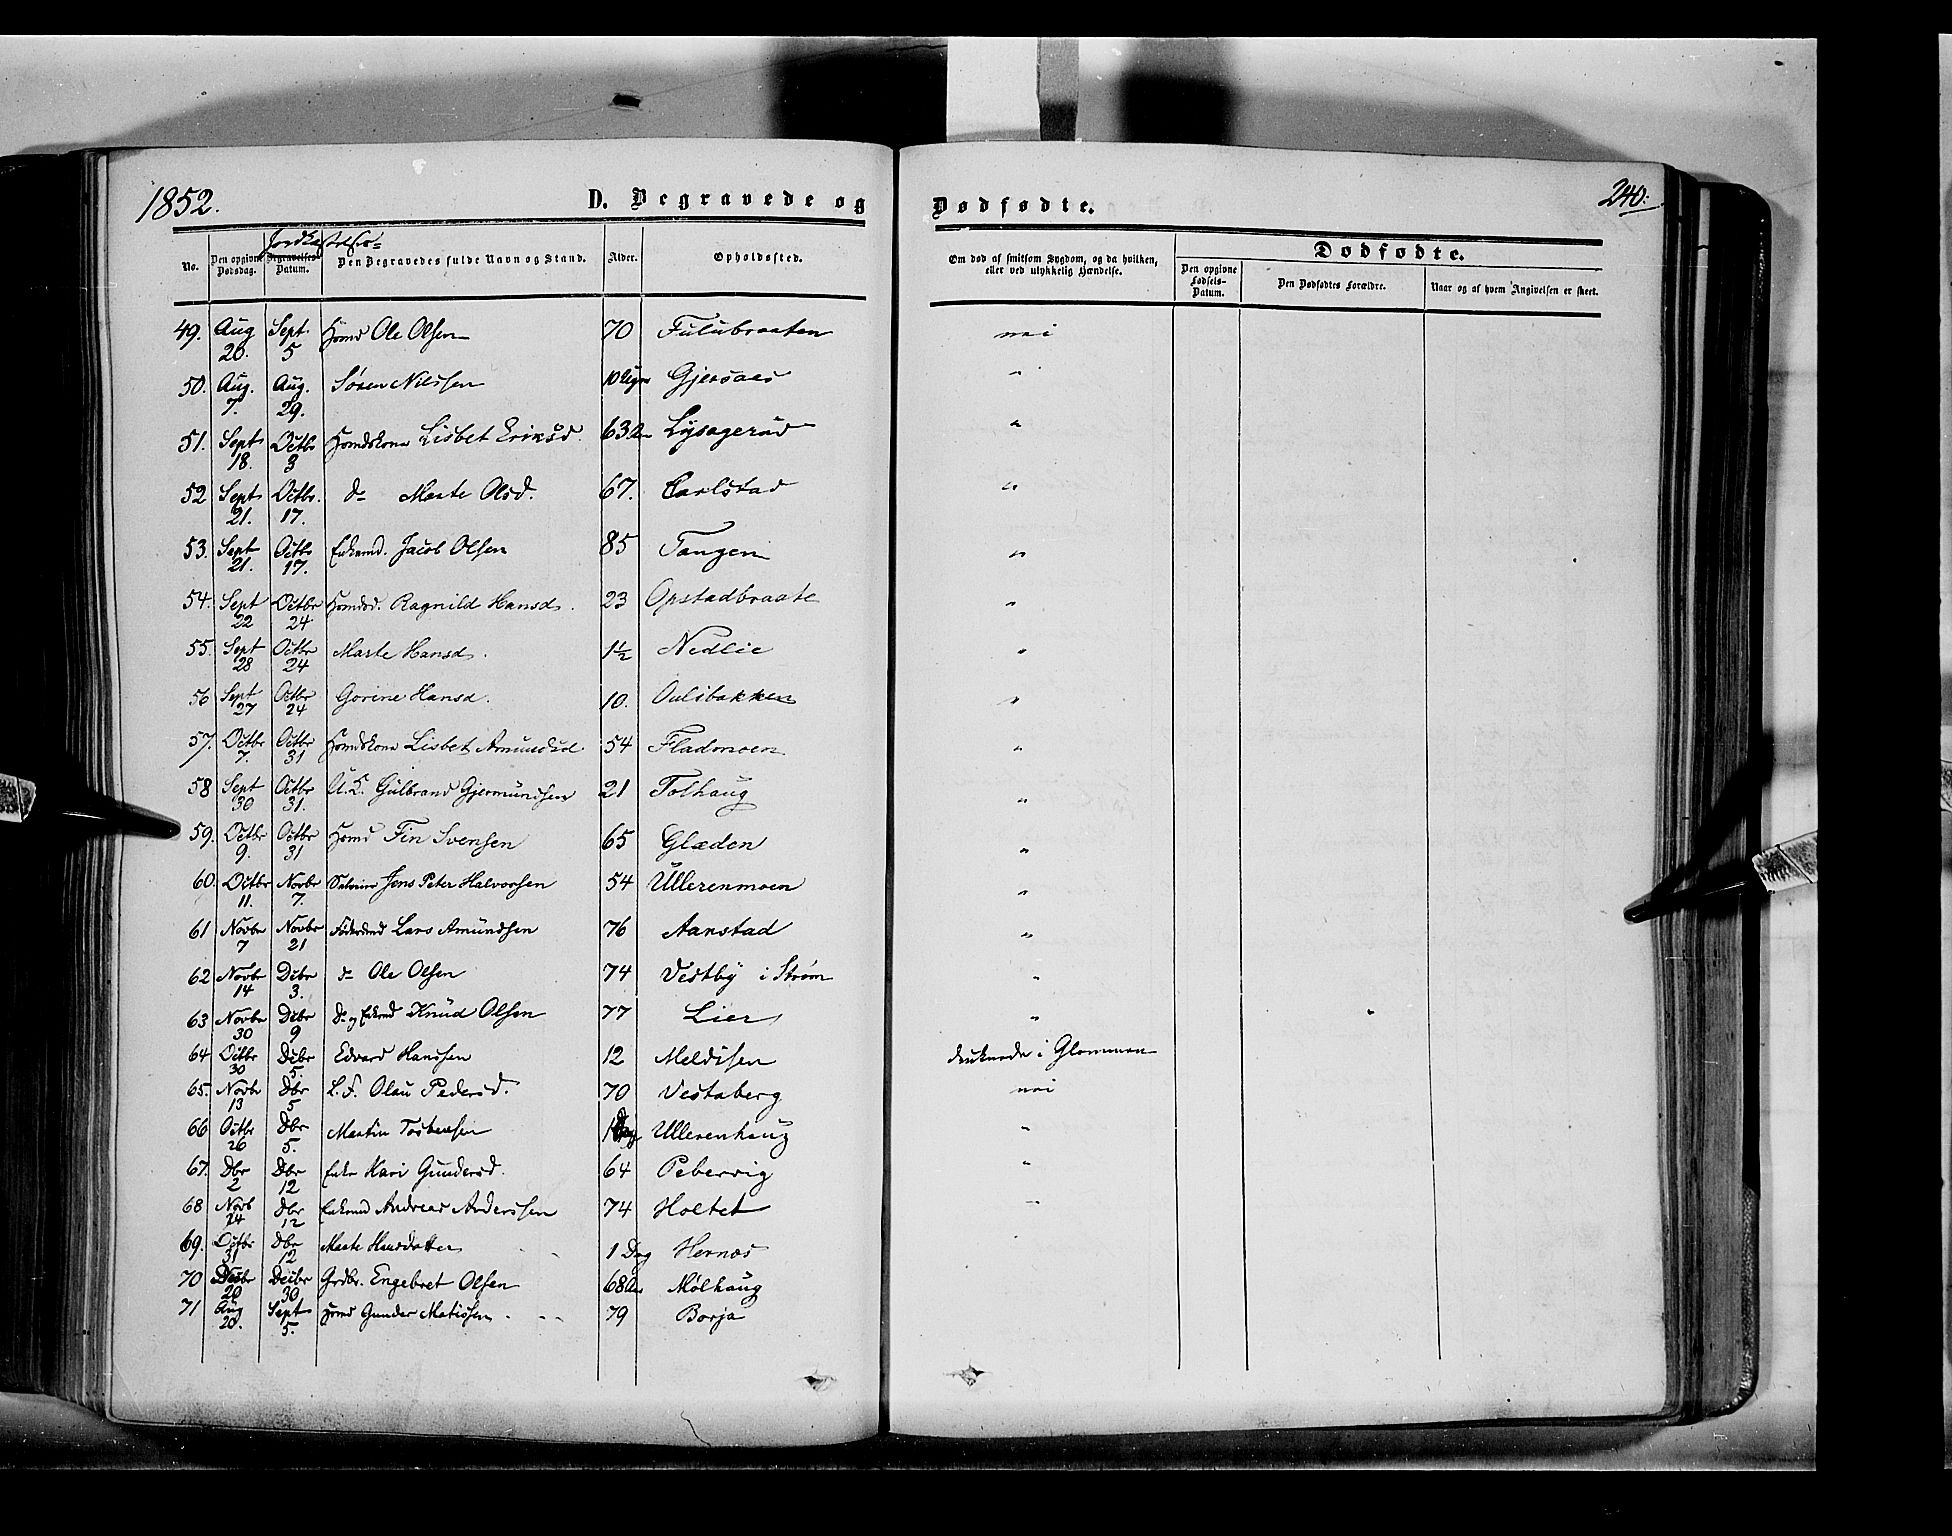 1852.
D. Begravede og
Dødfødte.
240.
Jordkastelses-
No.
Den opgivne Dødsdag.
Begravelses Datum.
Den Begravedes fulde Navn og Stand.
Alder.
Opholdssted.
Om død af smitsom Sygdom, og da hvilken, eller ved ulykkelig Hændelse.
Dødfødte.
Den opgivne Fødsels-Datum.
Den Dødfødtes Forældre.
Naar og af hvem Angivelsen er skeet.
49. Aug 20. Sept. 5 Hmd Ole Olsen 70 Fulubraaten nei
50. Aug. 7. Aug. 29. Søren Nilssen 10 Gjersaes "
51. Sept 18. Octbr 3 Hmdskone Lisbet Eriksd. 63 Lysagerud "
52 Sept 21. Octbr. 17. do Marte Olsd. 67. Carlstad "
53. Sept 21. Octbr 17. Enkemd. Jacob Olsen 85 Tangen "
54. Sept 22 Octbr 24 Ragnild Hansd. 23 Opstadbraate "
55. Sept 28 Octbr 24 Marte Hansd. 1½ Nedlie "
56 Sept 27 Octbr 24 Gorine Hansd. 10. Oulibakken "
57. Octbr 7. Octbr 31 Hmdskone Lisbet Amundsd 54 Fladmoen "
58 Sept 30 Octbr 31. U.K. Gulbrand Gjermundsen 21 Tolhaug "
59. Octbr 9. Octbr 31 Hmd Fin Svensen 65 Glæden "
60. Octbr 11. Novbr 7. Jens Peter Halvorsen 54 Ullerenmoen "
61 Novbr 7 Novbr 21 Føderaad Lars Amundsen 76 Aanstad "
62 Novbr 14 Debr 3. do Ole Olsen 74 Vestby i Strøm "
63 Novbr 30 Debr 9 do og Enkemd Knud Olsen 77 Lier "
64 Octbr 30 Debr 5. Edvard Hanssen 12 Meldisen druknede i Glommen
65. Novbr 13 Dbr 5 L.F. Olau Pedersd. 70 Vestaberg nei
66 Octbr 26 Dbr 5. Martin Torstensen 1 Ullerenhaug "
67. Dbr 2 Dbr 12 Enke Kari Gundersd. 64 Pebervig "
68 Novb 24 Dbr 12 Enkemd Andreas Anderssen 74 Holtet "
69. Octbr 31 Dbr 12 Marte Hansdatter 1 Dag Hernæs
70 Debr 20 Decbr 30 Grdbr. Engebret Olsen 68 Aar Mølhaug
71 Aug 20. Sept 5. Hmd Gunder Matissen 79 Borja